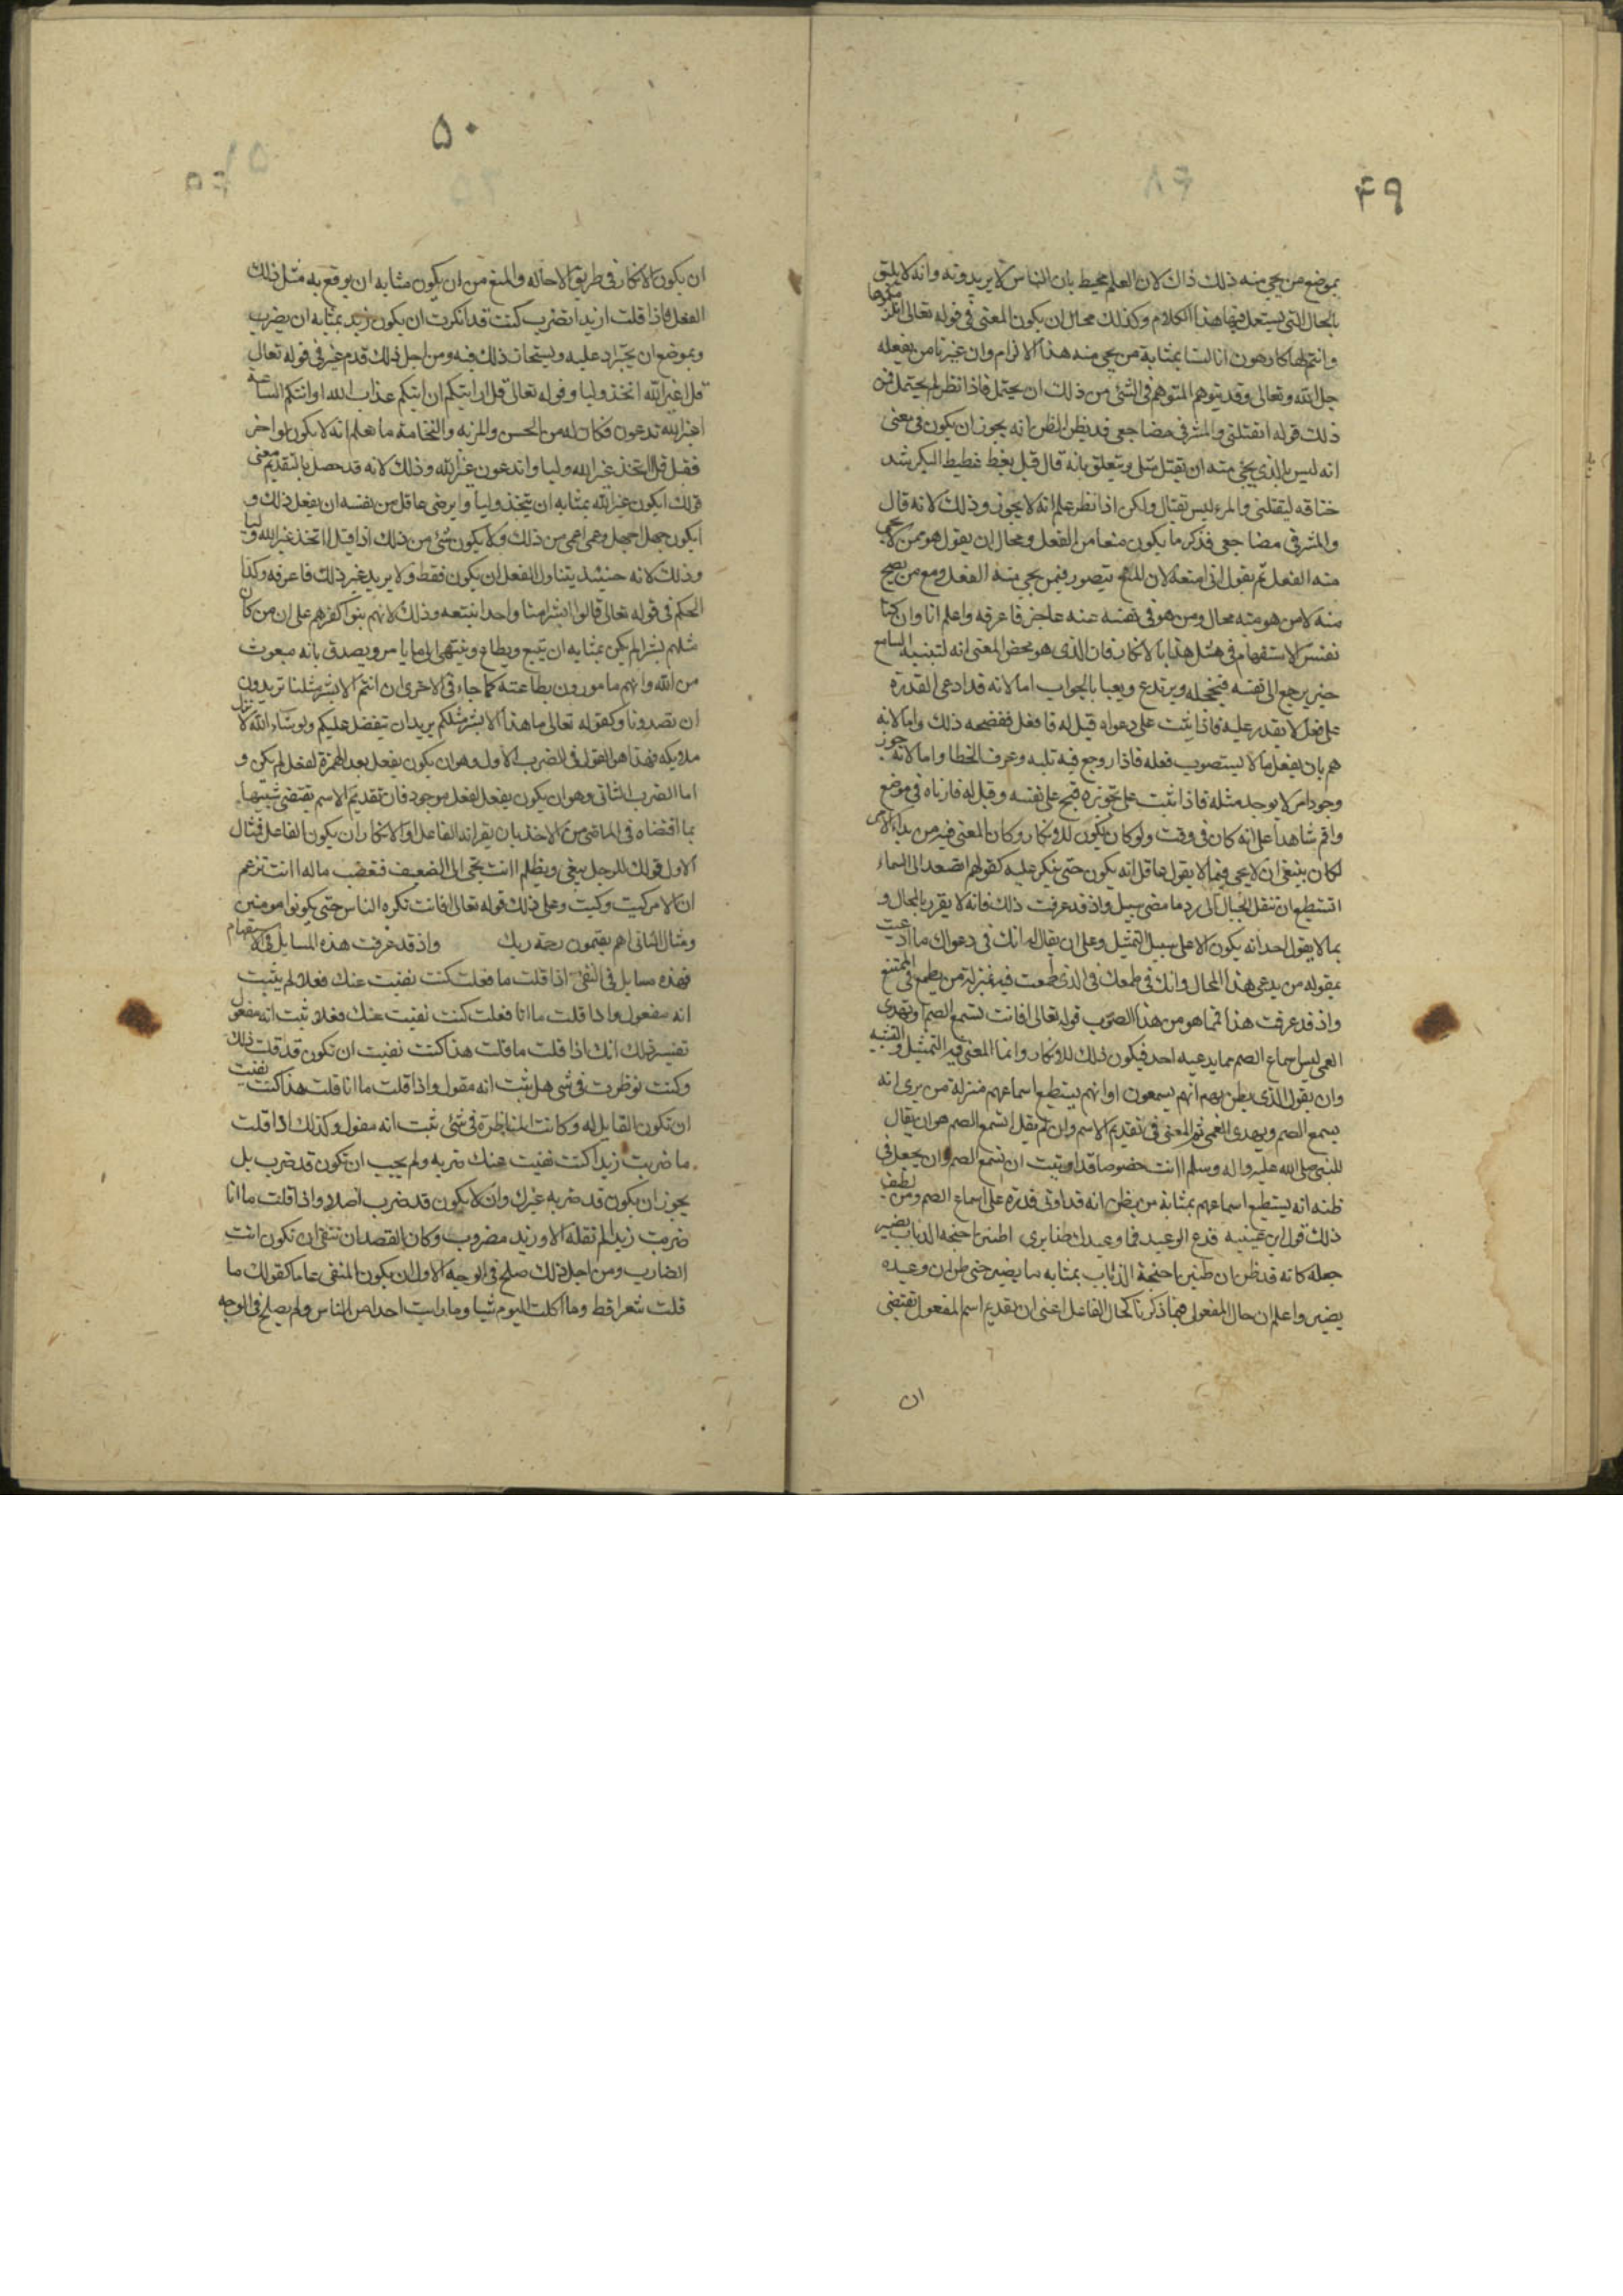 ۴۹
بموضع من يجي منه ذلك ذاك لان العلم محيط بان الناس لا يريدونه وانه لا يليق
بالحال التي يستعمل فيها هذا الكلام وكذلك محال ان يكون المعنى في قوله تعالى انلزمكموها
وانتم لها كارهون انا لسنا بمثابة من يجي منه هذا الالزام وان غيرنا من يفعله
جل الله وتعالى وقد يتوهم المتوهم في الشئ من ذلك ان يحتمل فاذا نظر لم يحتمل فمن
ذلك قوله ايقتلني والمشرفي مضاجعي قد يظن الظن انه يجوز ان يكون في معنى
انه ليس بالذي يجئ منه ان يقتل مثلي ويتعلق بانه قال قبل يغط غطيط البكر شد
خناقه ليقتلني والمرء ليس بقتال ولكن اذا نظر علم انه لا يجوز وذلك لانه قال
والمشرفي مضاجعي فذكر ما يكون منعا من الفعل ومحال ان يقول هو ممن لا يجي
منه الفعل ثم يقول اني امنعه لان المنع يتصور فيمن يجي منه الفعل ومع من يصح
منه لا من هو منه محال ومن هو في نفسه عنه عاجز فاعرفه واعلم انا وان كنا
نفسر الاستفهام في مثل هذا بالانكار فان الذي هو محض المعنى انه لتنبيه السامع
حتى يرجع الى نفسه فيخجله ويرتدع ويعيا بالجواب اما لانه قد ادعى القدرة
على فعل لا يقدر عليه فاذا يثبت على دعواه قيل له فافعل فيفضحه ذلك واما لانه
هم بان يفعل ما لا يستصوب فعله فاذا روجع فيه تنبه وعرف الخطا واما لانه جوز
وجود امر لا يوجد مثله فاذا ثبت على تجويزه قبح على نفسه وقيل له فارناه في موضع
واقم شاهدا على انه كان في وقت ولو كان يكون للانكار وكان المعنى فيه من بداء الامر
لكان ينبغي ان لا يجي فيما لا يقول عاقل انه يكون حتى ينكر عليه كقولهم اتصعد الى السماء
اتستطيع ان تنقل الجبال الى رد ما مضى سبيل واذ قد عرفت ذلك فانه لا يقرر بالمحال و
بما لا يقول احد انه يكون الا على سبيل التمثيل وعلى ان يقال له انك في دعواك ما ادعيت
بمقوله من يدعي هذا المحال وانك في طمعك في الذي طمعت فيه بمنزلة من يطمع في الممتنع
واذ قد عرفت هذا فما هو من هذا الضرب قوله تعالى افانت تسمع الصم او تهدي
العمي ليس اسماع الصم مما يدعيه احد فيكون ذلك للانكار وانما المعنى فيه التمثيل والتشبيه
وان يقول الذي يظن بهم انهم يسمعون او انهم يستطيع اسماعهم منزلة من يرى انه
يسمع الصم ويهدي العمي ثم المعنى في تقديم الاسم وان لم يقل اتسمع الصم هو ان يقال
للنبي صلى الله عليه واله وسلم اانت خصوصا قد اوتيت ان تسمع الصم وان يجعل في
ظنه انه يستطيع اسماعهم بمثابة من يظن انه قد اوتي قدرة على اسماع الصم ومن لطيف
ذلك قول ابن عيينيه فدع الوعيد فما وعيدك ضايري اطنين اجنحه الذباب يضير
جعله كانه قد ظن ان طنين اجنحة الذباب بمثابه ما يضير حتى ظن ان وعيده
يضير واعلم ان حال المفعول فيما ذكرنا كحال الفاعل اعني ان تقديم اسم المفعول يقتضي
ان
۵۰
ان يكون الانكار في طريق الاحاله والمنع من ان يكون مثابه ان يوقع به مثل ذلك
الفعل فاذا قلت ازيدا تضرب كنت قد انكرت ان يكون زيد بمثابه ان يضرب
وبموضع ان يجترا عليه ويستجاز ذلك فيه ومن اجل ذلك قدم غير في قوله تعالى
قل اغير الله اتخذ وليا وقوله تعالى قل ارايتكم ان اتيكم عذاب الله او اتتكم الساعة
اغير الله تدعون فكان له من الحسن والمزيه والفخامة ما تعلم انه لا يكون لو اخر
فقيل قل اتتخذ غير الله وليا واتدعون غير الله وذلك لانه قد حصل بالتقديم معنى
قولك ايكون غير الله بمثابه ان يتخذ وليا وايرضى عاقل من نفسه ان يفعل ذلك و
ايكون جهل اجهل وعمى اعمى من ذلك ولا يكون شئ من ذلك اذا قيل ااتخذ غير الله وليا
وذلك لانه حينئذ يتناول الفعل ان يكون فقط ولا يريد غير ذلك فاعرفه وكذا
الحكم في قوله تعالى قالوا ابشرا منا واحدا نتبعه وذلك لانهم بنوا كفرهم على ان من كان
مثلهم بشرا لم يكن بمثابه ان يتبع ويطاع وينتهى الى ما يامر ويصدق بانه مبعوث
من الله وانهم مامورون بطاعته كما جاء في الاخرى ان انتم الا بشر مثلنا تريدون
ان تصدونا وكقوله تعالى ما هذا الا بشر مثلكم يريد ان يتفضل عليكم ولو شاء الله لانزل
ملايكه فهذا هو القول في الضرب الاول وهو ان يكون يفعل بعد الهمزة لفعل لم يكن و
اما الضرب الثاني وهو ان يكون يفعل لفعل موجود فان تقديم الاسم يقتضي شبيها
بما اقتضاه في الماضي من الاخذ بان يقر انه الفاعل او الانكار ان يكون الفاعل فمثال
الاول قولك للرجل يبغي ويظلم اانت تجئ الى الضعيف فتغصب ماله اانت تزعم
ان الامر كيت وكيت وعلى ذلك قوله تعالى افانت تكره الناس حتى يكونوا مومنين
ومثال الثاني اهم يقتمون رحمة ربك واذ قد عرفت هذه المسايل في الاستفهام
فهذه مسايل في النفي اذا قلت ما فعلت كنت نفيت عنك فعلا لم يثبت
انه مفعول واذا قلت ما انا فعلت كنت نفيت عنك فعلا ثبت انه مفعول
تفسير ذلك انك اذا قلت ما قلت هذا كنت نفيت ان تكون قد قلت ذلك
وكنت نوظرت في شي هل ثبت انه مقول واذا قلت ما انا قلت هذا كنت نفيت
ان تكون القايل له وكانت المناظرة في شئ ثبت انه مقول وكذلك اذا قلت
ما ضربت زيدا كنت نفيت عنك ضربه ولم يجب ان تكون قد ضرب بل
يجوز ان يكون قد ضربه غيرك وان لا يكون قد ضرب اصلا واذا قلت ما انا
ضربت زيدا لم تقله الا وزيد مضروب وكان القصد ان تنفي ان تكون انت
الضارب ومن اجل ذلك صلح في الوجه الاول ان يكون المنفي عاما كقولك ما
قلت شعرا قط وما اكلت اليوم شيا وما رايت احدا من الناس ولم يصلح في الوجه